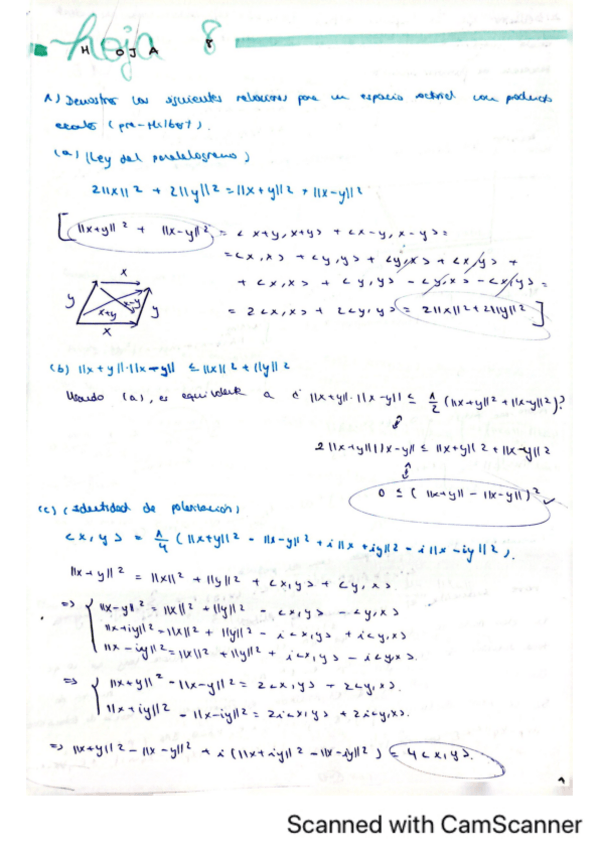 Hoja 8
HOJA 8
1) Demostrar las siguientes relaciones para un espacio vectorial con producto
escalar (pre-Hilbert).
(a) (Ley del paralelogramo)
2||x||² + 2||y||² = ||x+y||² + ||x-y||²
[ ||x+y||² + ||x-y||² = <x+y, x+y> + <x-y, x-y> =
= <x,x> + <y,y> + <y,x> + <x,y> +
+ <x,x> + <y,y> - <y,x> - <x,y> =
= 2<x,x> + 2<y,y> = 2||x||² + 2||y||² ]
x
y x+y x-y y
x
(b) ||x+y||·||x-y|| ≤ ||x||² + ||y||²
Usando (a), es equivalente a ¿ ||x+y||·||x-y|| ≤ 1/2 (||x+y||² + ||x-y||²)?
⇕
2||x+y|| ||x-y|| ≤ ||x+y||² + ||x-y||²
⇕
0 ≤ ( ||x+y|| - ||x-y|| )² ✓
(c) (Identidad de polarización)
<x,y> = 1/4 ( ||x+y||² - ||x-y||² + i||x+iy||² - i||x-iy||² ).
||x+y||² = ||x||² + ||y||² + <x,y> + <y,x>.
=> { ||x-y||² = ||x||² + ||y||² - <x,y> - <y,x>
||x+iy||² = ||x||² + ||y||² - i<x,y> + i<y,x>
||x-iy||² = ||x||² + ||y||² + i<x,y> - i<y,x>.
=> { ||x+y||² - ||x-y||² = 2<x,y> + 2<y,x>.
||x+iy||² - ||x-iy||² = 2i<x,y> + 2i<y,x>.
=> ||x+y||² - ||x-y||² + i(||x+iy||² - ||x-iy||²) = 4<x,y>.
1
Scanned with CamScanner